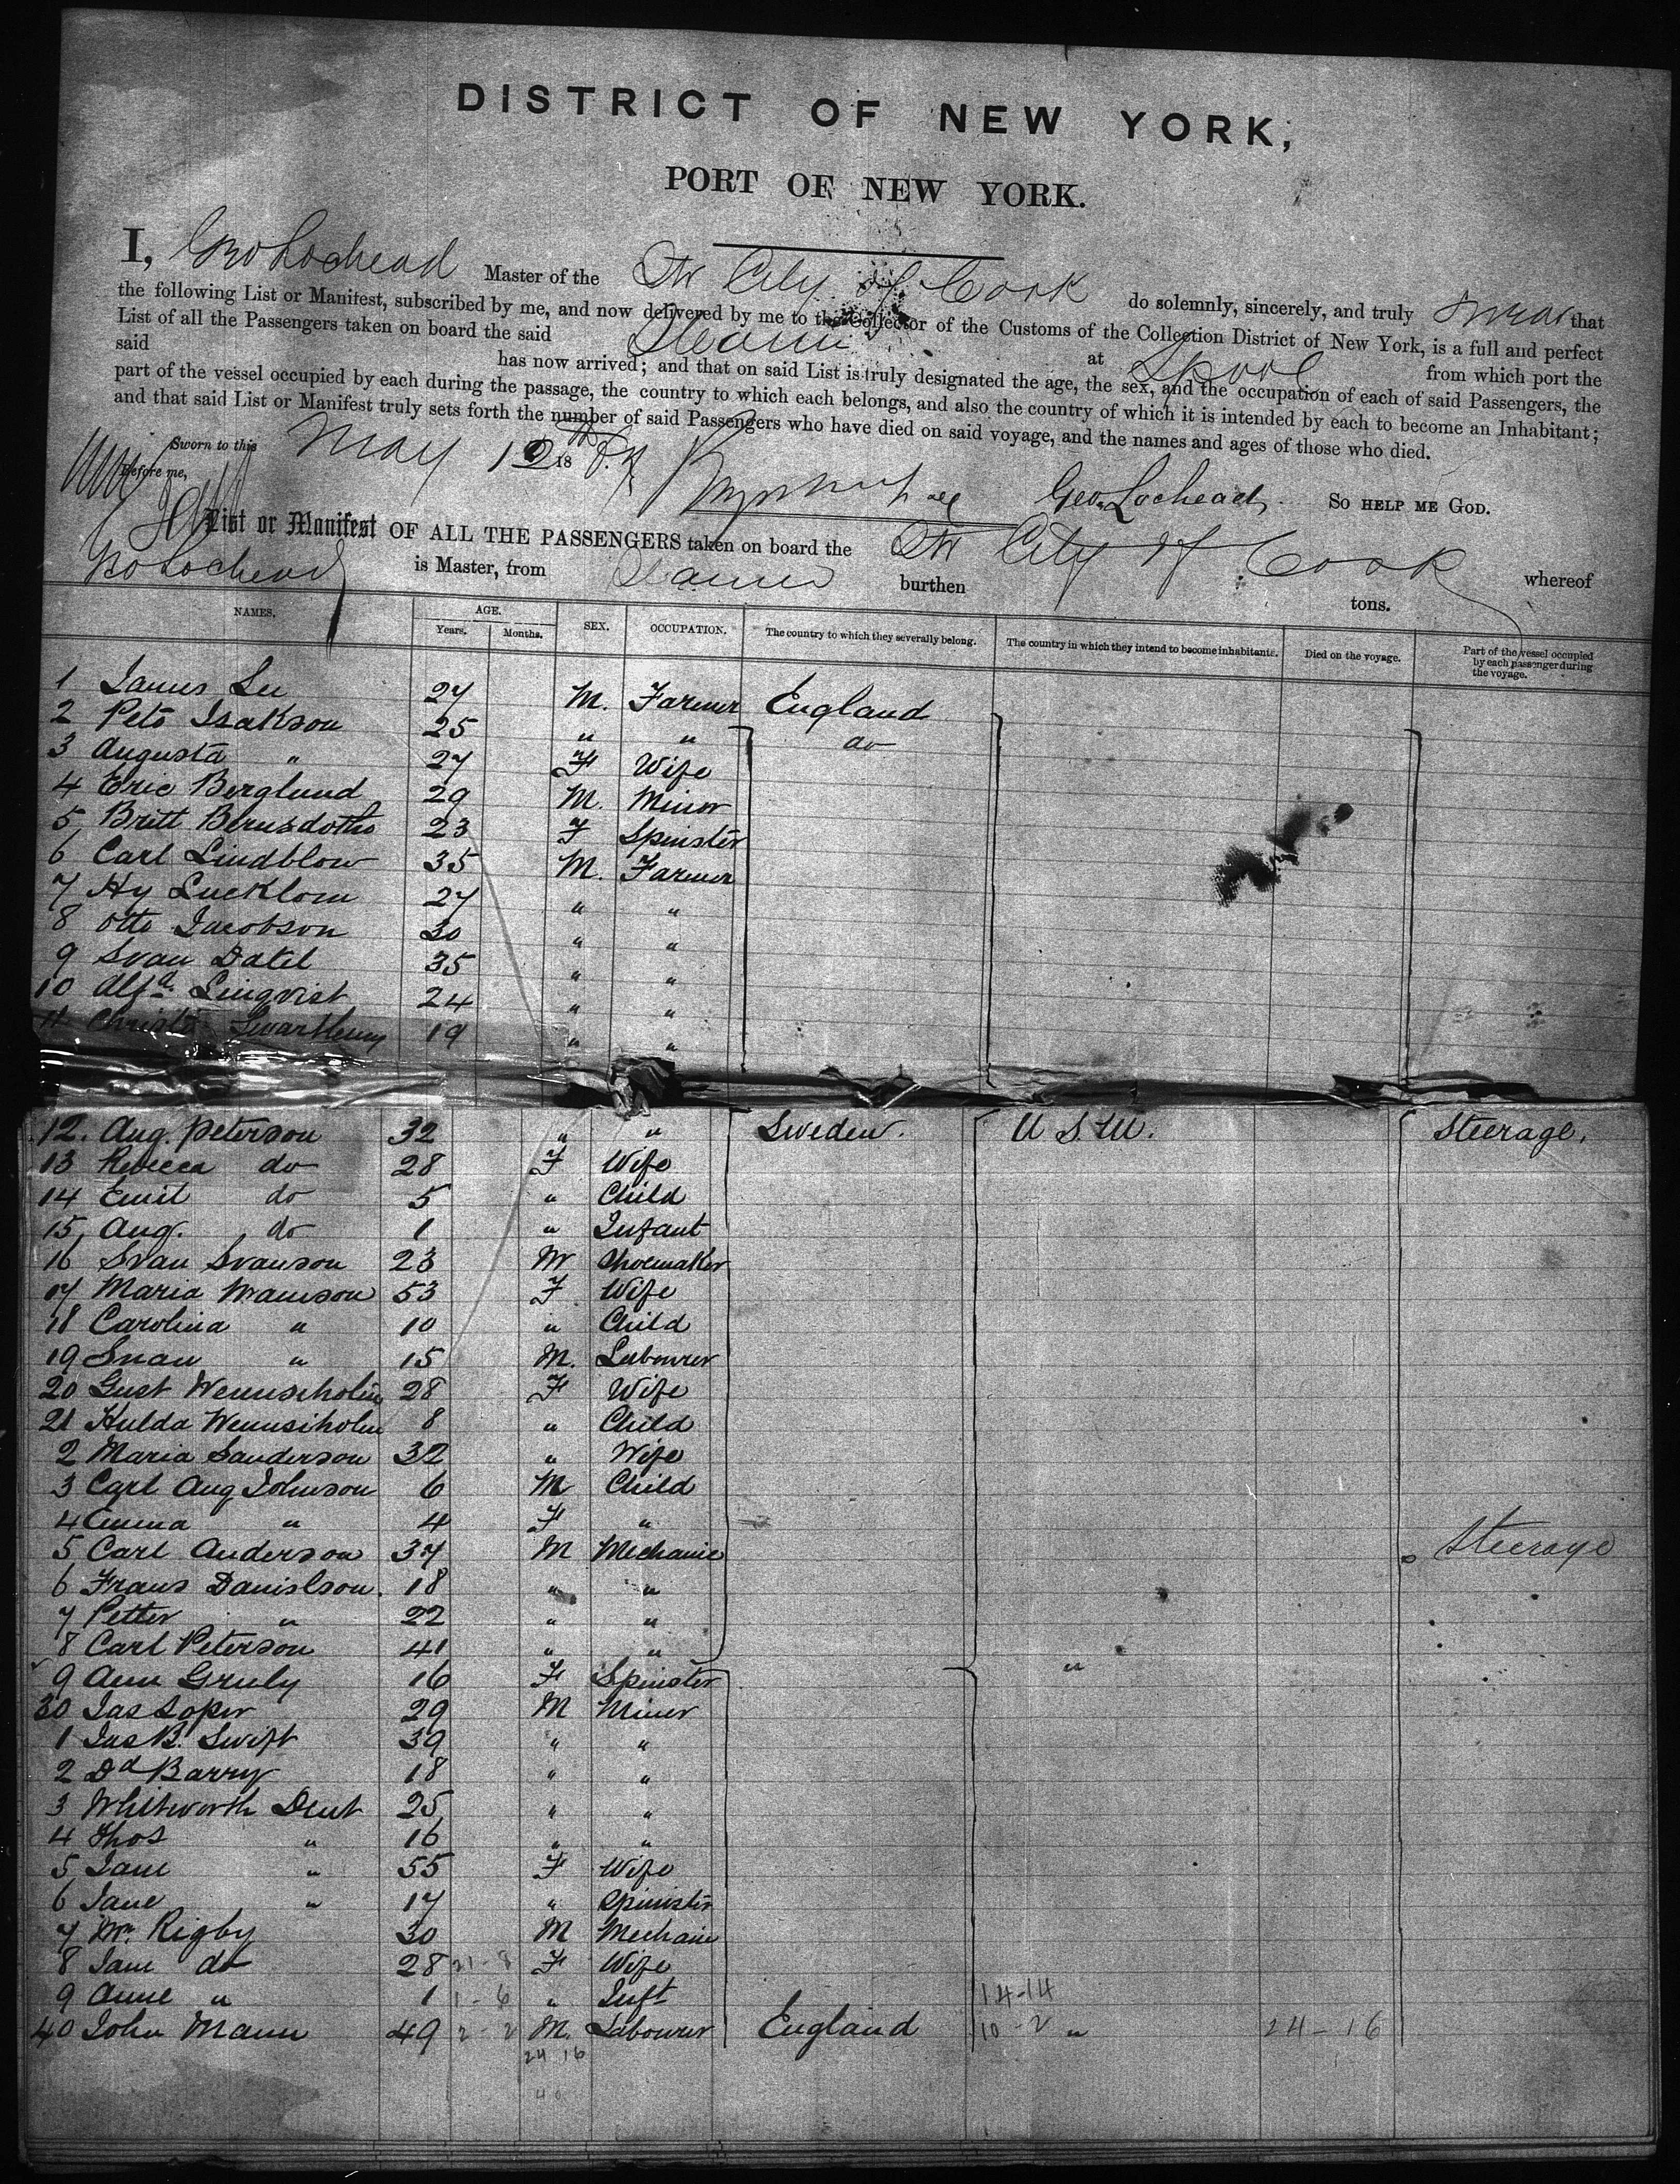 DISTRICT OF NEW YORK,
PORT OF NEW YORK.
I, Geo Lochead Master of the Str City of Cork do solemnly, sincerely, and truly swear that
the following List or Manifest, subscribed by me, and now delivered by me to the Collector of the Customs of the Collection District of New York, is a full and perfect
List of all the Passengers taken on board the said Steamer at Lpool from which port the
said has now arrived; and that on said List is truly designated the age, the sex, and the occupation of each of said Passengers, the
part of the vessel occupied by each during the passage, the country to which each belongs, and also the country of which it is intended by each to become an Inhabitant;
and that said List or Manifest truly sets forth the number of said Passengers who have died on said voyage, and the names and ages of those who died.
Sworn to this May 12 18
Before me, Geo Lochead, SO HELP ME GOD.
List or Manifest OF ALL THE PASSENGERS taken on board the Str City of Cook whereof
Geo Lochead is Master, from burthen tons.
NAMES. AGE. Years. Months. SEX. OCCUPATION. The country to which they severally belong. The country in which they intend to become inhabitants. Died on the voyage. Part of the vessel occupied by each passenger during the voyage.
1 James Lee 27 M. Farmer England
2 Peto Isakson 25 " " do
3 Augusta " 27 F Wife
4 Eric Berglund 29 M. Minor
5 Britt 23 F Spinster
6 Carl Lindblow 35 M. Farmer
7 Hy Lucklom 27 " "
8 Otto Jacobson 30 " "
9 Svan Datel 35 " "
10 Alfd. Linqvist 24 " "
11 19 " "
12. Aug. Peterson 32 " " Sweden. U S. Steerage.
13 Rebecca do 28 F Wife
14 Emil do 5 " Child
15 Aug. do 1 " Infant
16 Svan Svanson 23 M Shoemaker
17 Maria 53 F Wife
18 Carolina " 10 " Child
19 Svan " 15 M. Labourer
20 Gust 28 F Wife
21 Hulda 8 " Child
2 Maria Sanderson 32 " Wife
3 Carl Aug Johnson 6 M Child
4 Emma " 4 F "
5 Carl Anderson 37 M Mechanic Steerage
6 Frans Danielson. 18 " "
7 Petter " 22 " "
8 Carl Peterson 41 " "
9 Ann Gruly 16 F Spinster "
30 Jas Soper 29 M Miner
1 Jas B. Swift 39 " "
2 Dd Barry 18 " "
3 Whitworth Dent 25 " "
4 Thos " 16 " "
5 Jane " 55 F Wife
6 Jane " 17 " Spinster
7 Wm Rigby 30 M Mechanic
8 Jane do 28 21-8 F Wife
9 Anne " 1 1-6 " Inft 14-14
40 John Mann 49 2-2 M. Labourer England 10-2 " 24-16
24 16
40